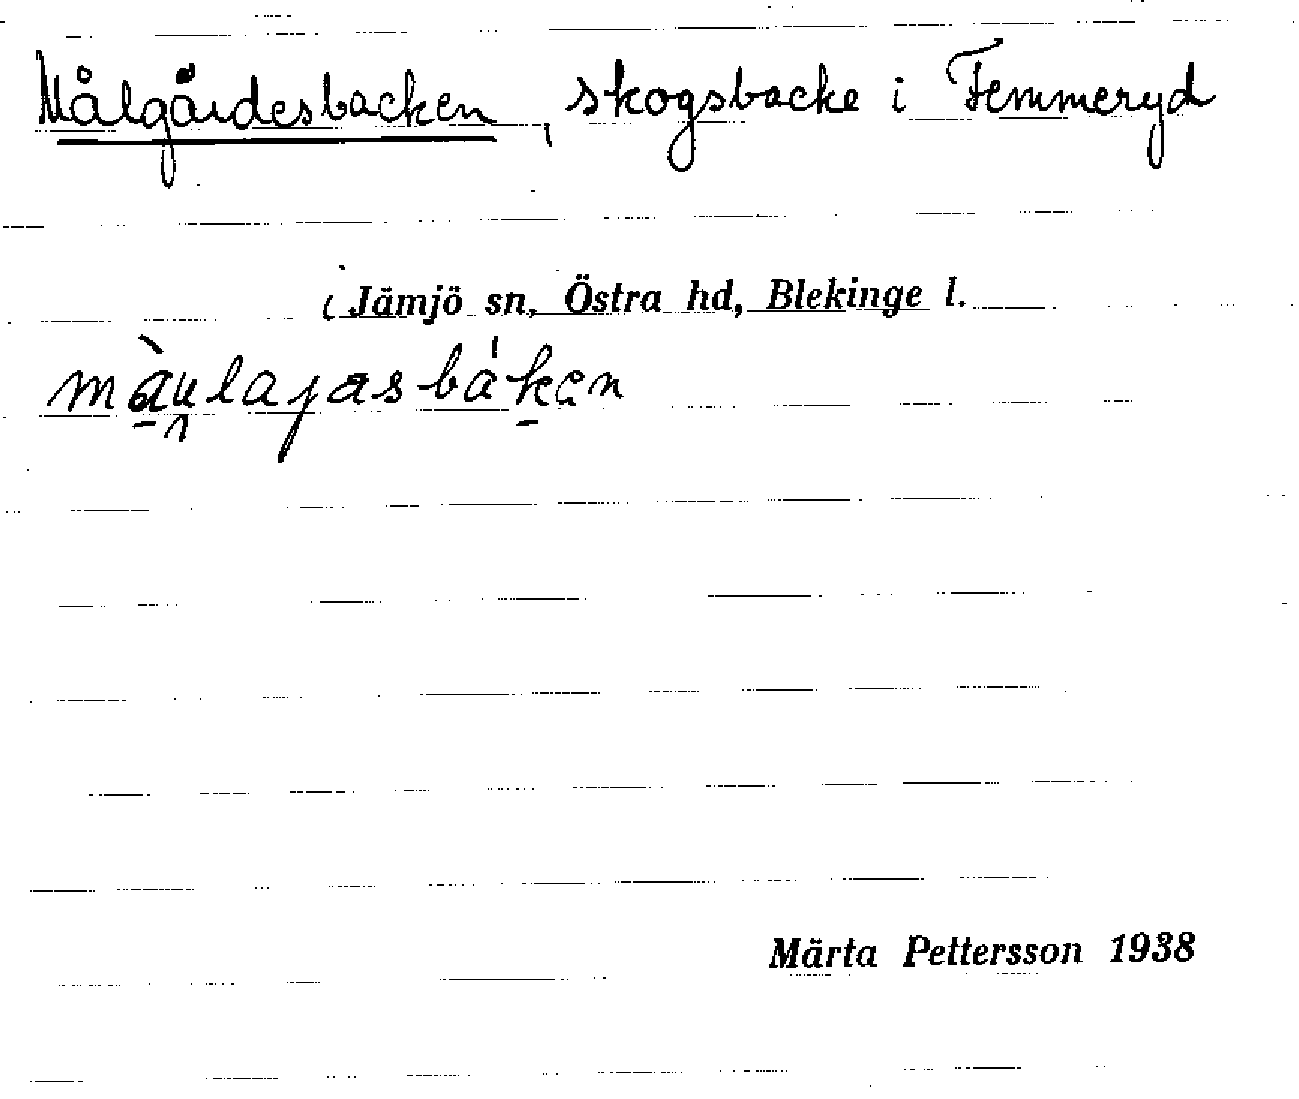 Målgärdesbacken, skogsbacke i Femmeryd
i Jämjö sn, Östra hd, Blekinge l.
Märta Pettersson 1938